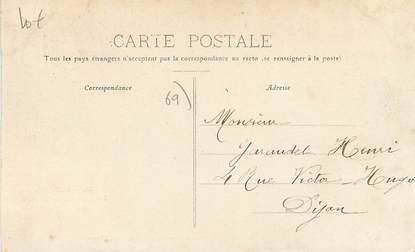 Lot
CARTE POSTALE
Tous les pays étrangers n'acceptent pas la correspondance au recto, (se renseigner à la poste)
Correspondance
Adresse
69)
Monsieur
Henri
4 Rue Victor-Hugo
Dijon